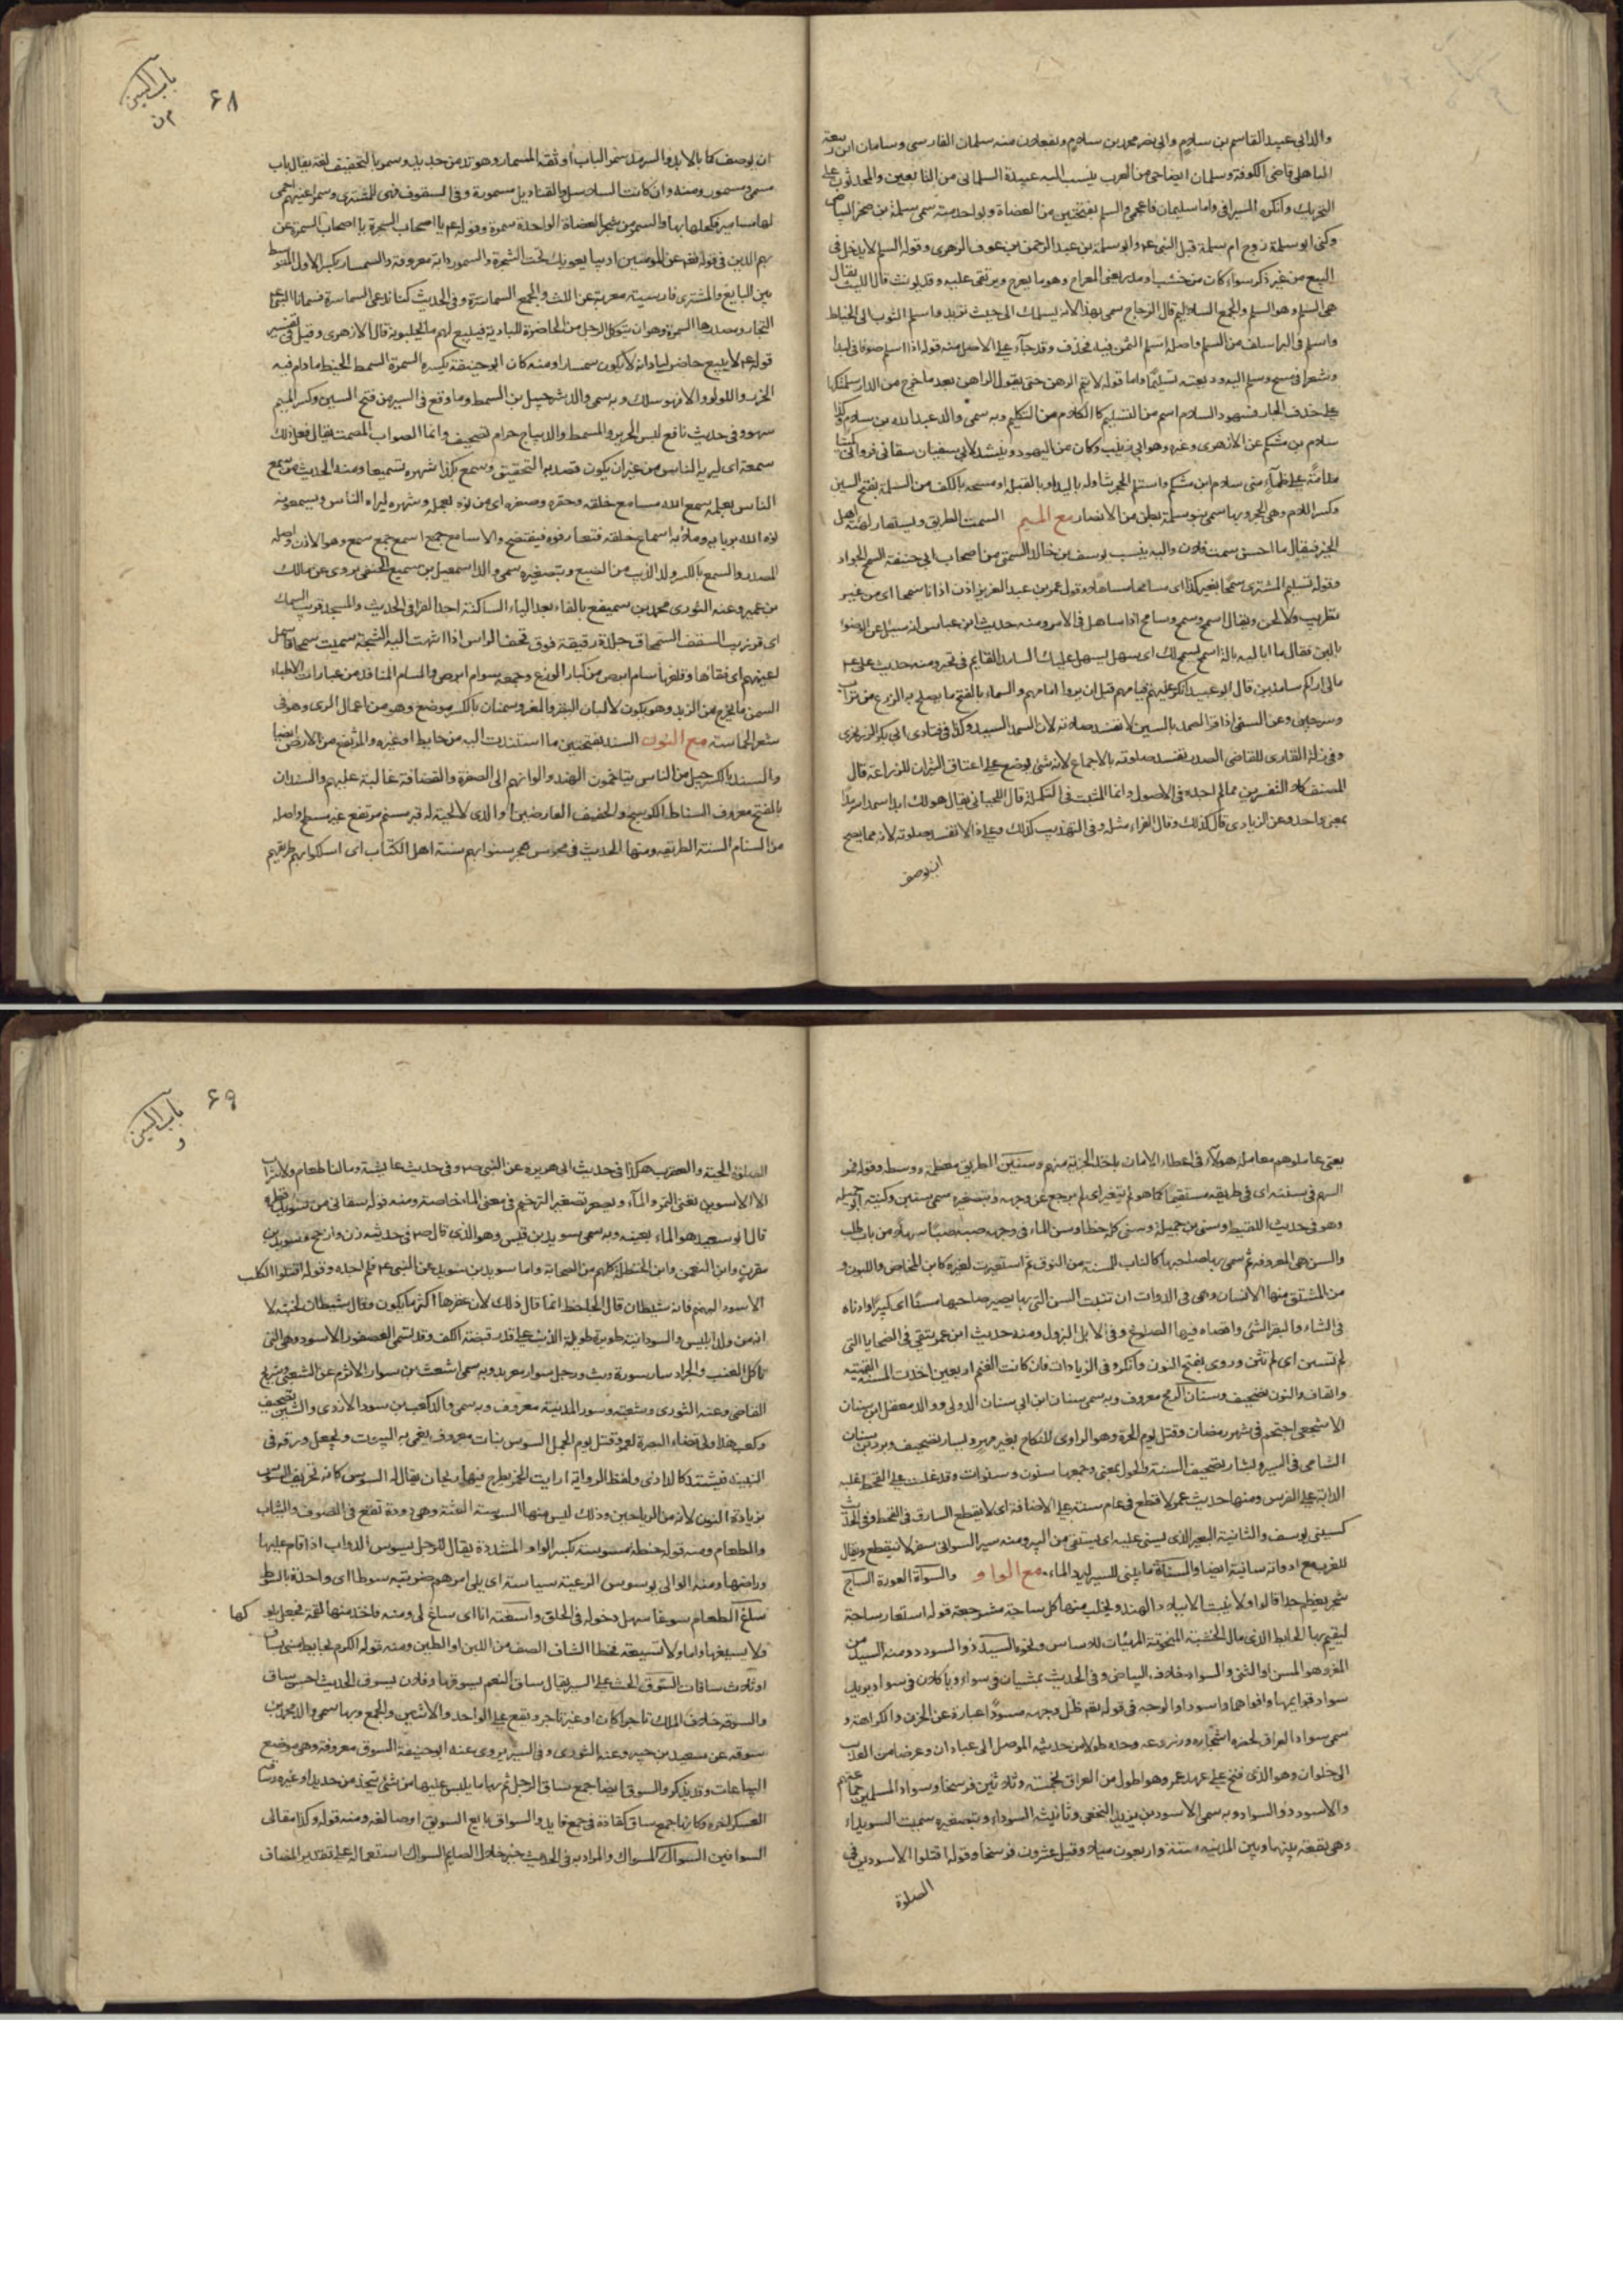 والد ابى عبيد القاسم بن سلام وابى نصر محمد بن سلام وبفعلان منه سلمان الفارسى وسلمان ابن ربيعة
الباهلى قاضى الكوفة وسلمان ايضا حى من العرب ينسب اليه عبيدة السلمانى من التابعين والمحدثون على
التحريك وانكره السيرافى واما سليمان فاعجمى والسلم بفتحتين من العضاة وبواحدته سمى سلمة بن صخر البياضى
وكنى ابو سلمة زوج ام سلمة قبل النبى عم وابو سلمة بن عبد الرحمن بن عوف الزهرى وقوله السلم لا يدخل فى
البيع من غير ذكر سواء كان من خشب او مدر يعنى المعراج وهو ما يعرج ويرتقى عليه وقد يؤنث قال الليث يقال
هى السلم وهو السلم والجمع السلاليم قال الزجاج سمى بهذا لانه يسلمك الى حيث تريد واسلم الثوب الى الخياط
واسلم فى البر اسلف من السلم واصله اسلم الثمن فيه فحذف وقد جاء على الاصل منه قوله اذا اسلم صوفا فى لبد
وشعرا فى مسح وسلم اليه وديعته تسليما واما قوله لا يتم الرهن حتى يقول الراهن بعد ما خرج من الدار سلمتكها
على حذف الجار فسهو والسلام اسم من التسليم كالكلام من التكليم وبه سمى والد عبد الله بن سلام وكذا
سلام بن مشكم عن الازهرى وغيره وهو ابى زينب وكان من اليهود وينشد لابى سفيان سقانى فروانى كميتا
مدامة على ظماء منى سلام ابن مشكم واستلم الحجر تناوله باليد او بالقبلة او مسحه بالكف من السلمة بفتح السين
وكسر اللام وهى الحجر وبها سمى بنو سلمة بطن من الانصار مع الميم السمت الطريق ويستعار لهيئة اهل
الخير فيقال ما احسن سمت فلان واليه ينسب يوسف بن خالد السمتى من اصحاب ابى حنيفة السمح الجواد
وقوله تسليم المشترى سمحا بغير كذا اى مسامحا مساهلا وقول عمر بن عبد العزيز اذن اذانا سمحا اى من غير
تطريب ولا لحن ويقال اسمح وسمح وسامح اذا ساهل فى الامر ومنه حديث ابن عباس انه سئل عن الوضوء
باللبن فقال ما اباليه بالة اسمح يسمح لك اى يسهل يسهل عليك السامد القايم فى تحير ومنه حديث على عم
مالى اراكم سامدين قال ابو عبيد انكر عليهم قيامهم قبل ان يروا امامهم والسماد بالفتح ما يصلح به الزرع من تراب
وسرجين وعن النسفى اذا قرا الصمد بالسين لا تفسد صلاته لان السمد السيد وكذا فى فتاوى ابى بكر الزرنجرى
وفى زلة القارى للقاضى الصدر تفسد صلوته بالاجماع لانه شى يوضع على اعناق الثيران للزراعة قال
المصنف كلا التفسيرين مما لم اجده فى الاصول وانما المثبت فى التكملة قال اللحيانى يقال هو لك ابدا سمدا سرمدا
بمعنى واحد وعن الزيادى قال كذلك وقال الفراء مثله وفى التهذيب كذلك وعلى هذا لا تفسد صلوته لانه مما يصح
ان يوصف
٦٨
باب السين
م ن
ان يوصف كما بالابد والسرمد سمر الباب اوثقه المسمار وهو وتد من حديد وسمر بالتخفيف لغة يقال باب
مسمر ومسمور ومنه وان كانت السلاسل والقناديل مسمورة وفى السقوف فهى للمشترى وسمر اعينهم احمى
لها مسامير فكحلها بها والسمر من شجر العضاة الواحدة سمرة وقوله عم يا اصحاب الشجرة يا اصحاب السمرة عن
بهم الذين فى قوله تعالى عن المؤمنين اذ يبايعونك تحت الشجرة والسمور دابة معروفة والسمسار بكسر الاول المتوسط
بين البايع والمشترى فارسية معربة عن الليث والجمع السماسرة وفى الحديث كنا ندعى السماسرة فسمانا النبى عم
التجار ومصدرها السمسرة وهو ان يتوكل الرجل من الحاضرة للبادية فيبيع لهم ما يجلبونه قال الازهرى وقيل فى تفسير
قوله عم لا يبيع حاضر لباد انه لا يكون سمسارا ومنه كان ابو حنيفة يكره السمسرة السمط الخيط ما دام فيه
الخرز واللؤلؤ والا فهو سلك وبه سمى والد شرحبيل بن السمط وما وقع فى السير من فتح السين وكسر الميم
سهو وفى حديث نافع لبس الحرير والمسمط والديباج حرام تصحيف وانما الصواب المصمت يقال فعل ذلك
سمعة اى ليريه الناس من غير ان يكون قصد به التحقيق وسمع بكذا شهره تسميعا ومنه الحديث من سمع
الناس بعمله سمع الله مسامع خلقه وحقره وصغره اى من نوه بعمله وشهره ليراه الناس ويسمعوا به
نوه الله بريايه وملأ به اسماع خلقه فتعارفوه فيفتضح والاسامع جمع اسمع جمع سمع وهو الاذن واصله
المصدر والسمع بالكسر ولد الذيب من الضبع وبتصغيره سمى والد اسمعيل بن سميع الحنفى يروى عن مالك
بن عمير وعنه الثورى محمد بن سميفع بالفاء بعد الياء الساكنة احد القرا فى الحديث والمسجد قريب السمك
اى قريب السقف السمحاق جلدة رقيقة فوق قحف الراس اذا انتهت اليه الشجة سميت سمحاقا سمل
اعينهم اى فقأها وقلعها سام ابرص من كبار الوزغ وجمعه سوام ابرص والمسام المنافذ من عبارات الاطباء
السمن ما يخرج من الزبد وهو يكون لالبان البقر والمعز وسمنان بالكسر موضع وهو من اعمال الرى وهو فى
شعر الحماسة مع النون السند بفتحتين ما استندت اليه من حايط او غيره والمرتفع من الارض ايضا
والسند بالكسر جيل من الناس يتاخمون الهند والوانهم الى الصفرة والقضافة غالبة عليهم والسندان
بالفتح معروف السناط الكوسج والخفيف العارضين او الذى لا لحية له قبر مسنم مرتفع غير مسطح واصله
من السنام السنة الطريقة ومنها الحديث فى مجوس هجر سنوا بهم سنة اهل الكتاب اى اسلكوا بهم طريقهم
يعنى عاملوهم معاملة هؤلاء فى اعطاء الامان باخذ الجزية منهم وسنن الطريق معظمه ووسطه وقوله فمر
السهم فى سننه اى فى طريقه مستقيما كما هو لم يتغير اى لم يرجع عن وجهه وبتصغيره سمى سنين وكنيته ابو جميلة
وهو فى حديث اللقيط وسنى بن جميلة وسنى كله خطا وسن الماء فى وجهه صبه صبا سهلا من باب طلب
والسن هى المعروفة ثم سمى بها صاحبها كالناب للمسنة من النوق ثم استعيرت لغيره كابن المخاض واللبون و
من المشتق منها الاسنان وهى فى الدواب ان تنبت السن التى بها يصير صاحبها مسنا اى كبيرا وادناه
فى الشاء والبقر الثنى واقصاه فيها الصلوغ وفى الابل البزول ومنه حديث ابن عمر يتقى فى الضحايا التى
لم تسنن اى لم تثن وروى بفتح النون وانكر وفى الزيادات فان كانت الغنم اربعين اخذت المسنة الفتية
والقاف والنون تصحيف وسنان الرمح معروف وبه سمى سنان ابن ابى سنان الدولى ووالد معقل ابن سنان
الاشجعى احتجم فى شهر رمضان وقتل يوم الحرة وهو الراوى للنكاح بغير مهر ويسار تصحيف وبرد بن سنان
الشامى فى السير وبشار تصحيف السنة والحول بمعنى وجمعها سنون وسنوات وقد غلبت على القحط غلبة
الدابة على الفرس ومنها حديث عمر لا قطع فى عام سنة على الاضافة اى لا يقطع السارق فى القحط وفى الحديث
كسنى يوسف والسانية البعير الذى يسنى عليه اى يستقى من البير ومنه سير السوانى سفر لا ينقطع ويقال
للغرب مع ادواته سانية ايضا والمسناة ما يبنى للسيل ليرد الماء مع الواو والسوأة العورة الساج
شجر يعظم جدا قالوا ولا ينبت الا ببلاد الهند ويجلب منها كل ساجة مشرجعة قوله استعار ساجة
ليقيم بها الحايط الذى مال الخشبة المنحوتة المهيئات للاساس ونحوه السيد ذو السودد ومنه السيد من
المعز وهو المسن او الثنى والسواد خلاف البياض وفى الحديث يمشيان فى سواد وياكلان فى سواد يريد
سواد قوايمها وافواهها واسوداد الوجه فى قوله تعالى ظل وجهه مسودا عبارة عن الحزن والكراهة و
سمى سواد العراق لخضرة اشجاره وزروعه وحده طولا من حديثة الموصل الى عبادان وعرضا من العذيب
الى حلوان وهو الذى فتح على عهد عمر وهو اطول من العراق بخمسة وثلاثين فرسخا وسواد المسلمين جماعتهم
والاسود ذو السواد وبه سمى الاسود بن يزيد النخعى وتانيثه السوداء وبتصغيره سميت السويداء
وهى بقعة بينها وبين المدينة ستة واربعون ميلا وقيل عشرون فرسخا وقوله اقتلوا الاسودين فى
الصلوة
٦٩
باب السين
و
الصلوة الحية والعقرب هكذا فى حديث ابى هريره عن النبى صم وفى حديث عايشة وما لنا طعام ولا شراب
الا الاسودين يعنى التمر والماء ويصغر تصغير الترخيم فى معنى الماء خاصة ومنه قوله سقانى من سويد قطرة
قال ابو سعيد هو الماء بعينه وبه سمى سويد بن قيس وهو الذى قال صم فى حديثه زن وارجح وسويد بن
مقرن وابن النعمن وابن الحنظلة كلهم من الصحابة واما سويد بن سويد عن النبى عم فلم اجده وقوله اقتلوا الكلب
الاسود البهيم فانه شيطان قال الجاحظ انما قال ذلك لان عقرها اكثر ما يكون وقال شيطان لخبثه لا
انه من ولد ابليس والسودانية طويرة طويلة الذنب على قدر قبضة الكف وقد تسمى العصفور الاسود وهى التى
تاكل العنب والجراد سار سورة وثب ورجل سوار معربد وبه سمى اشعث بن سوار الاثرم عن الشعبى وشريح
القاضى وعنه الثورى وشعبة وسور المدينة معروف وبه سمى والد كعب بن سور الازدى والشين تصحيف
وكعب هذا ولى قضاء البصرة لعمر وقتل يوم الجمل السوس نبات معروف يغمى به البيوت ويجعل ورقه فى
النبيذ فيشتد كالدادى ولفظ الرواية ارايت الخمر يطرح فيها ريحان يقال له السوس كانه تحريف السوسن
بزيادة النون لانه من الرياحين وذلك ليس منها السوسة العثة وهى دودة تقع فى الصوف والثياب
والطعام ومنه قوله حنطة مسوسة بكسر الواو المشددة يقال للرجل يسوس الدواب اذا قام عليها
وراضها ومنه الوالى يسوس الرعية سياسة اى يلى امرهم ضربته سوطا اى واحدة بالسوط
ساغ الطعام سوغا سهل دخوله فى الحلق واسغته انا اى ساغ لى ومنه فاخذ منها لقمة فجعل يلوكها
ولا يسيغها واما ولا تسيغه فخطا الساف الصف من اللبن او الطين ومنه قوله الكرم بحايط مبنى بساف
او ثلاث سافات السوق الحث على السير يقال ساق النعم يسوقها وفلان يسوق الحديث احسن سياق
والسوقة خلاف الملك تاجرا كان او غير تاجر ويقع على الواحد والاثنين والجمع وبها سمى والد محمد بن
سوقة عن سعيد بن جبير وعنه الثورى وفى السير يروى عنه ابو حنيفة السوق معروفة وهى موضع
البياعات وقد يذكر والسوق ايضا جمع ساق الرجل ثم بها ما يلبس عليها من شى يتخذ من حديد او غيره وساقة
العسكر اخره وكانها جمع ساق كقادة فى جمع قايد والسواق بايع السويق او صانعه ومنه قوله وكذا مقالى
السواقين السواك المسواك والمراد به فى الحديث خير خلال الصايم السواك استعماله على تقدير المضاف